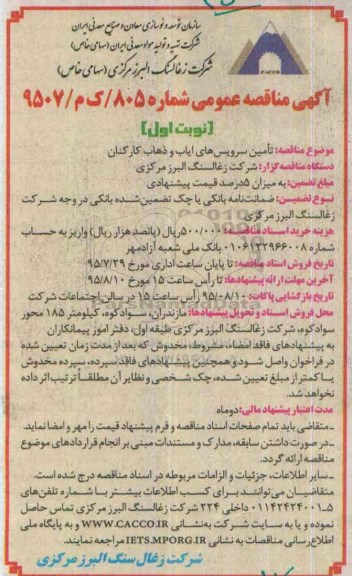 سازمان توسعه و نوسازی معادن و صنایع معدنی ایران
شرکت تهیه و تولید مواد معدنی ایران (سهامی خاص)
شرکت زغالسنگ البرز مرکزی (سهامی خاص)
آگهی مناقصه عمومی شماره ۸۰۵/ک م/۹۵۰۷
(نوبت اول)
موضوع مناقصه: تأمین سرویس‌های ایاب و ذهاب کارکنان
دستگاه مناقصه‌گزار: شرکت زغالسنگ البرز مرکزی
مبلغ تضمین: به میزان ۵درصد قیمت پیشنهادی
نوع تضمین: ضمانت‌نامه بانکی یا چک تضمین‌شده بانکی در وجه شرکت
زغالسنگ البرز مرکزی
هزینه خرید اسناد مناقصه: ۵۰۰/۰۰۰ریال (پانصد هزار ریال) واریز به حساب
شماره ۰۱۰۶۱۲۲۹۶۶۰۰۸ بانک ملی شعبه آزادمهر
تاریخ فروش اسناد مناقصه: تا پایان ساعت اداری مورخ ۹۵/۷/۲۹
آخرین مهلت ارائه پیشنهادها: تا رأس ساعت ۱۵ مورخ ۹۵/۸/۱۰
تاریخ بازگشایی پاکات: ۹۵/۰۸/۱۰ رأس ساعت ۱۵ در سالن اجتماعات شرکت
محل فروش اسناد و تحویل پیشنهادها: مازندران، سوادکوه، کیلومتر ۱۸۵ محور
سوادکوه، شرکت زغالسنگ البرز مرکزی طبقه اول، دفتر امور پیمانکاران
به پیشنهادهای فاقد امضاء، مشروط، مخدوش که بعد از مدت زمان تعیین شده
در فراخوان واصل شود و همچنین پیشنهادهای فاقد سپرده، سپرده مخدوش
یا کمتر از مبلغ تعیین شده، چک شخصی و نظایر آن مطلقاً ترتیب اثر داده
نخواهد شد.
مدت اعتبار پیشنهاد مالی: دوماه
ـ متقاضی باید تمام صفحات اسناد مناقصه و فرم پیشنهاد قیمت را مهر و امضا نماید.
ـ در صورت داشتن سابقه، مدارک و مستندات مبنی بر انجام قراردادهای موضوع
مناقصه ارائه گردد.
ـ سایر اطلاعات، جزئیات و الزامات مربوطه در اسناد مناقصه درج شده است.
متقاضیان می‌توانند برای کسب اطلاعات بیشتر با شماره تلفن‌های
۵ـ۰۱۱۴۲۴۲۴۰۰۱ داخلی ۲۲۴ شرکت زغالسنگ البرز مرکزی تماس حاصل
نموده و یا به سایت شرکت به‌نشانی WWW.CACCO.IR و به پایگاه ملی
اطلاع‌رسانی مناقصات به نشانی IETS.MPORG.IR مراجعه نمایند.
شرکت زغال سنگ البرز مرکزی